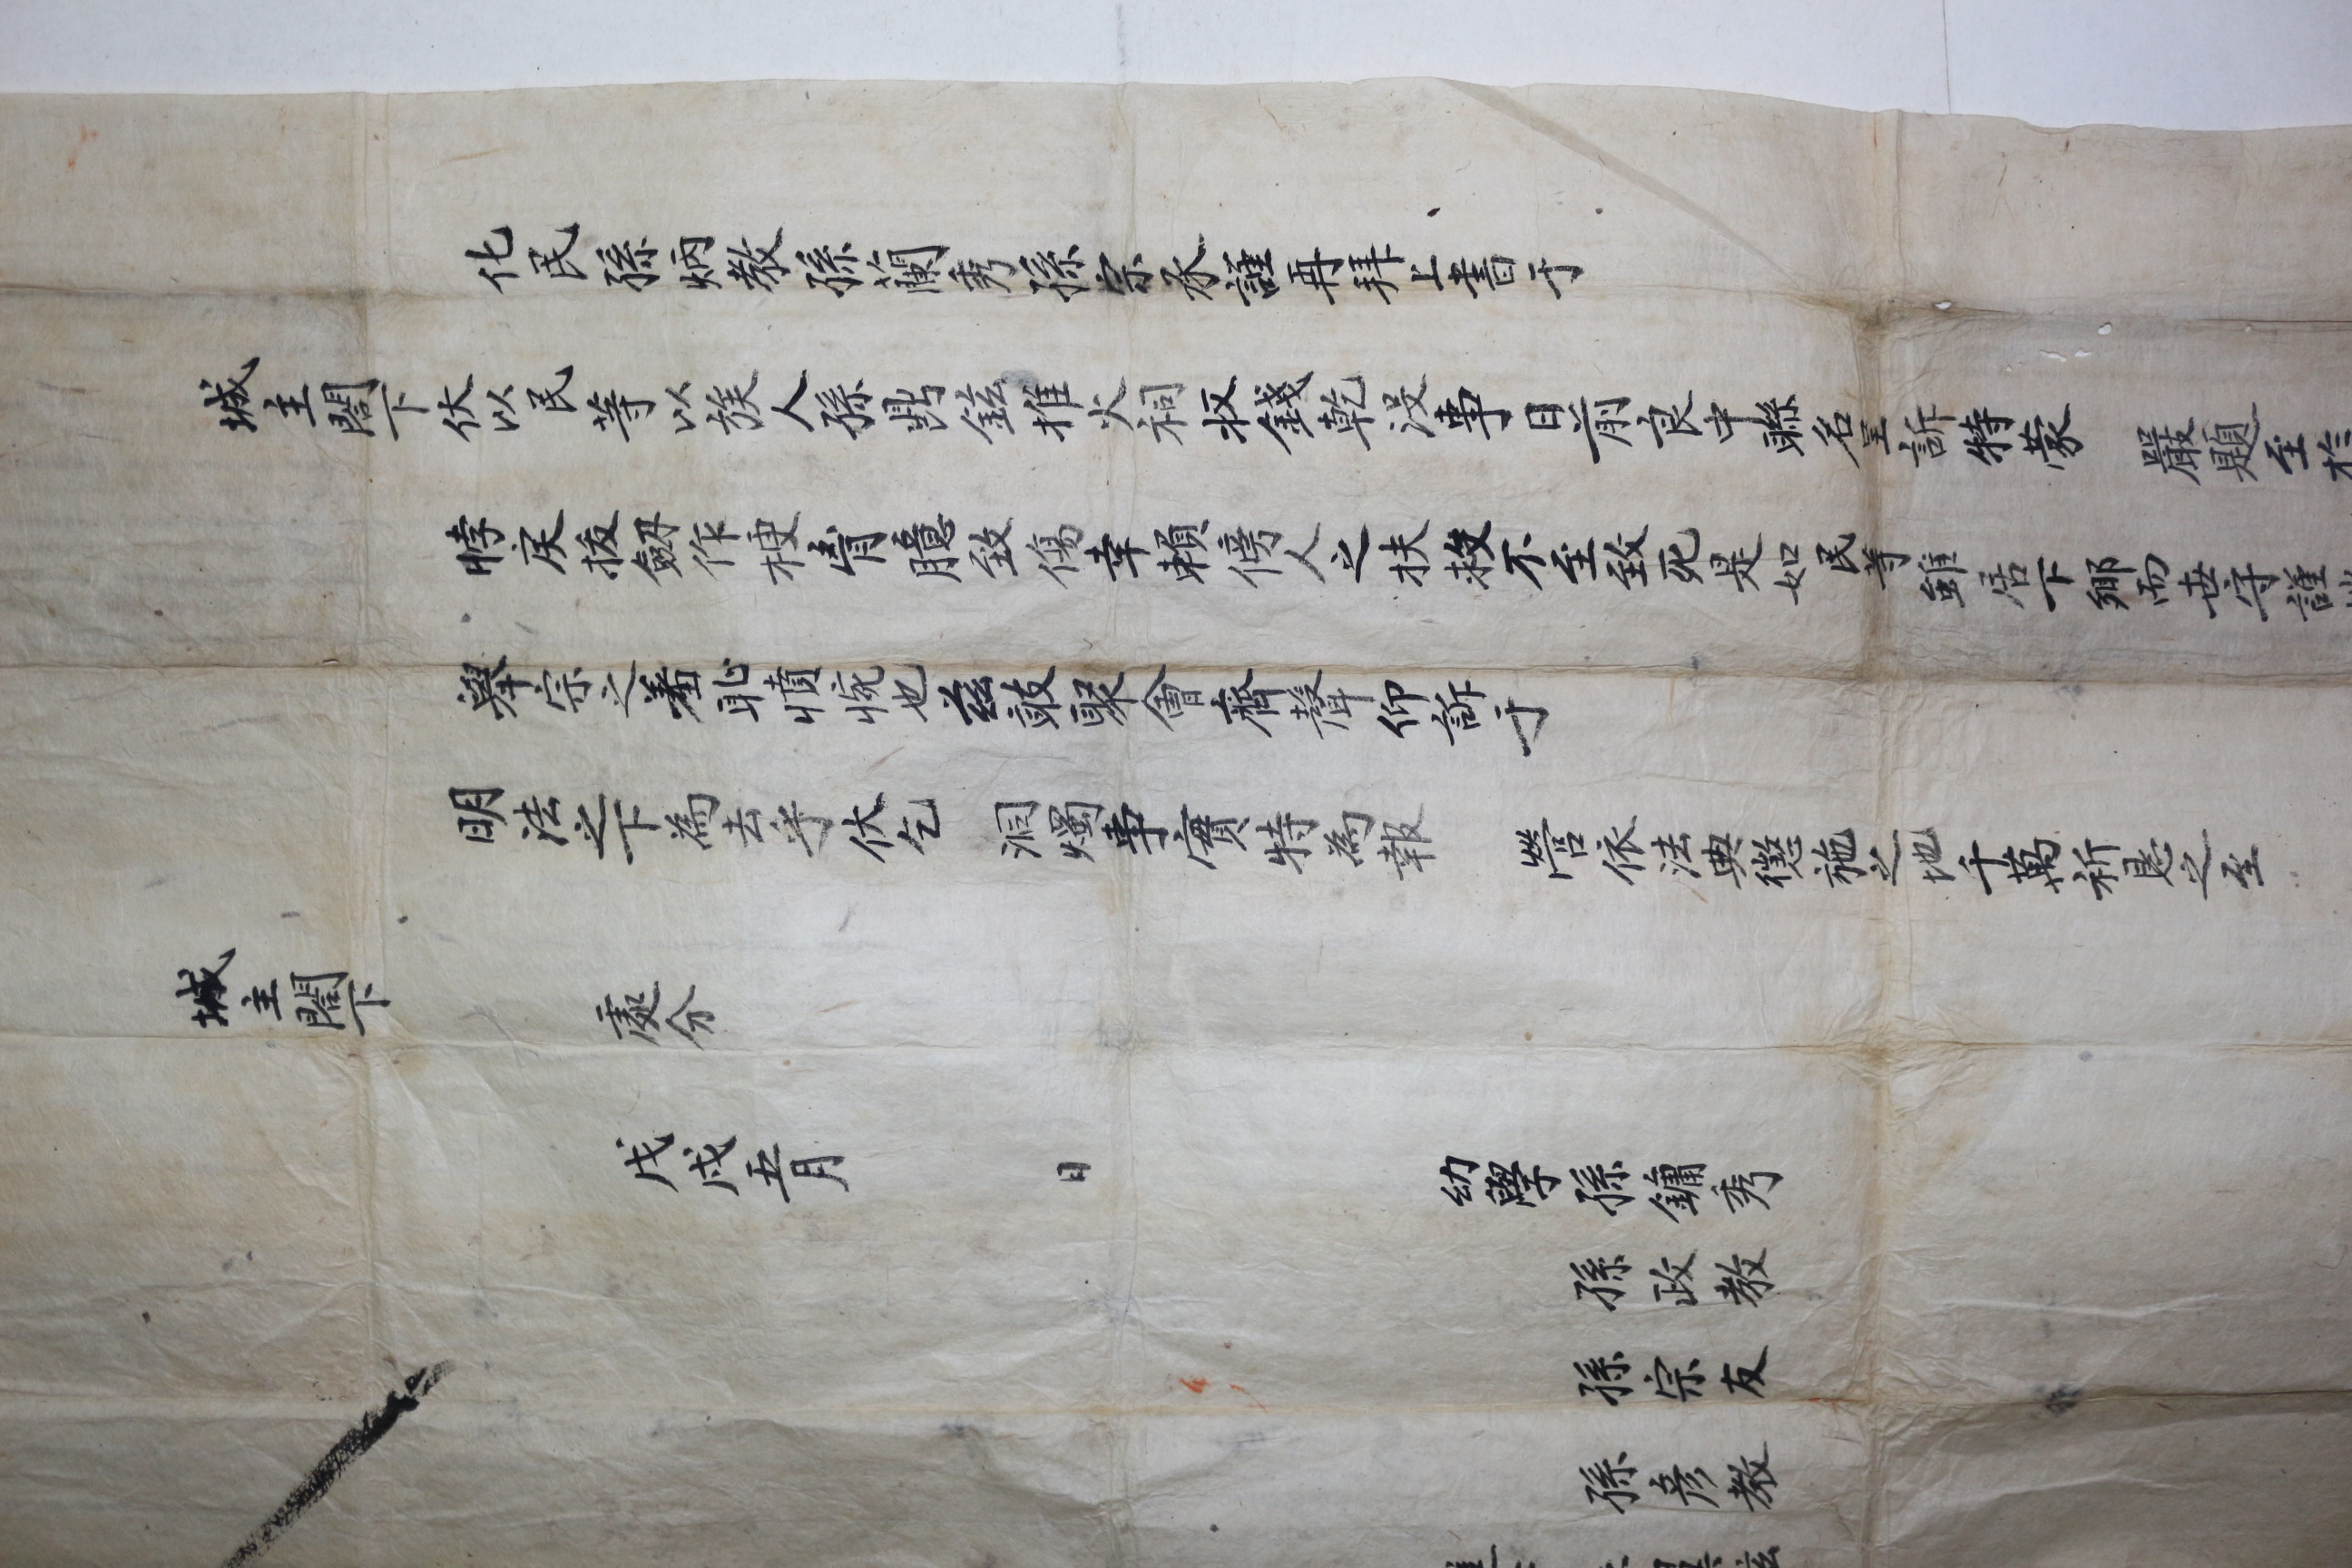 化民孫炳敎孫蘭秀孫宗永謹再拜上書于
城主閤下伏以民等以族人孫鐫鉉推火祠收錢乾沒事日前良中聯名呈訴特蒙 嚴題至於
悖戾拔劒作梗胷臆致傷幸賴傍人之扶救不至致死是如民等雖居下鄕而世守謹
擧宗之羞耻憤惋也玆敢聚會齊聲仰訴于
明法之下爲去乎伏乞 洞燭事實特爲報 營依法典懲施之地千萬祈恳之至
城主閤下 處分
戊戌五月 日 幼學孫鏞秀
孫政敎
孫宗友
孫彦敎